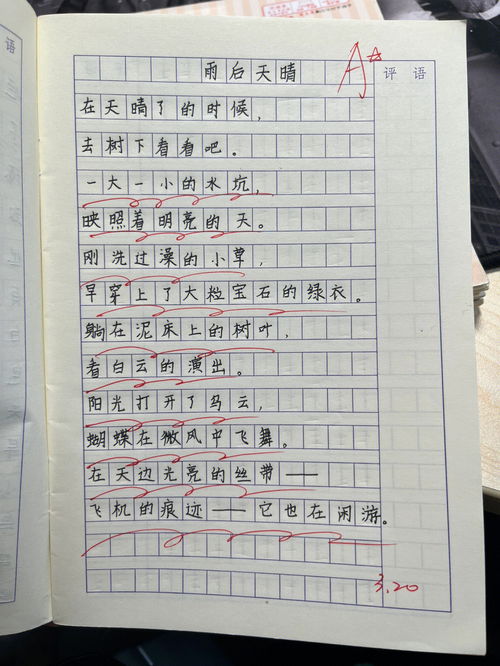 雨后天晴
A+
评语
在天晴了的时候，
去树下看看吧。
一大一小的水坑，
映照着明亮的天。
刚洗过澡的小草，
早穿上了大粒宝石的绿衣。
躺在泥床上的树叶，
看白云的演出。
阳光打开了马云，
蝴蝶在微风中飞舞。
在天边光亮的丝带——
飞机的痕迹——它也在闲游。
3.20